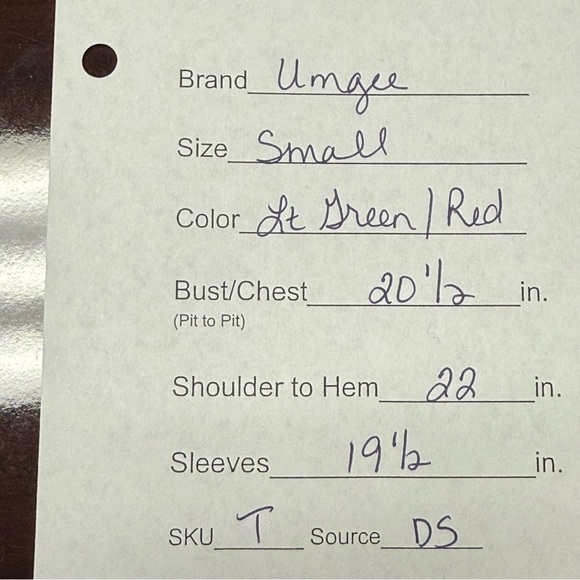 Brand Umgee
Size Small
Color Lt Green/Red
Bust/Chest 20 1/2 in.
(Pit to Pit)
Shoulder to Hem 22 in.
Sleeves 19 1/2 in.
SKU T Source DS